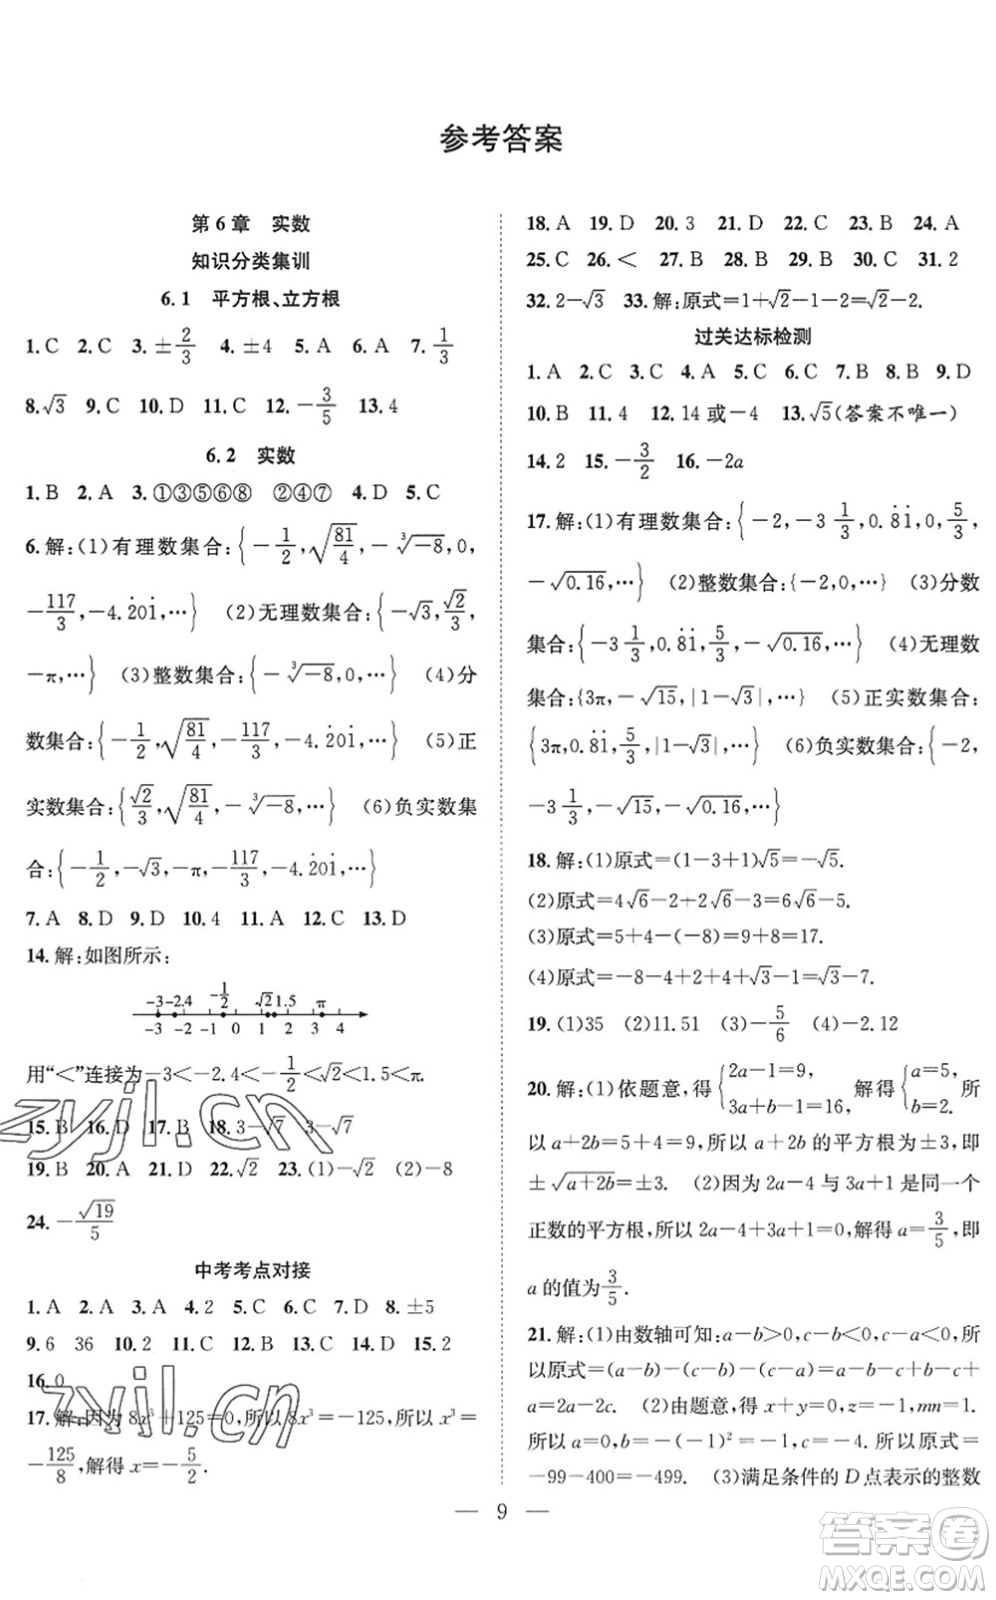 参考答案
第 6 章　实数
知识分类集训
6.1　平方根、立方根
1.C　2.C　3.±2/3　4.±4　5.A　6.A　7.1/3
8.√3　9.C　10.D　11.C　12.-3/5　13.4
6.2　实数
1.B　2.A　3.①③⑤⑥⑧　②④⑦　4.D　5.C
6.解:(1)有理数集合:{-1/2,√(81/4),-∛-8,0,
-117/3,-4.2̇01̇,…}　(2)无理数集合:{-√3,√2/3,
-π,…}　(3)整数集合:{-∛-8,0,…}　(4)分
数集合:{-1/2,√(81/4),-117/3,-4.2̇01̇,…}　(5)正
实数集合:{√2/3,√(81/4),-∛-8,…}　(6)负实数集
合:{-1/2,-√3,-π,-117/3,-4.2̇01̇,…}
7.A　8.D　9.D　10.4　11.A　12.C　13.D
14.解:如图所示:
-3 -2.4　-1/2　√2 1.5　π
-3 -2 -1 0 1 2 3 4
用“<”连接为-3<-2.4<-1/2<√2<1.5<π.
15.B　16.D　17.B　18.3-√7　3-√7
19.B　20.A　21.D　22.√2　23.(1)-√2　(2)-8
24.-√19/5
中考考点对接
1.A　2.A　3.A　4.2　5.C　6.C　7.D　8.±5
9.6　36　10.2　11.C　12.B　13.C　14.D　15.2
16.0
17.解:因为 8x³+125=0,所以 8x³=-125,所以 x³=
-125/8,解得 x=-5/2.
18.A　19.D　20.3　21.D　22.C　23.B　24.A
25.C　26.<　27.D　28.B　29.B　30.C　31.2
32.2-√3　33.解:原式=1+√2-1-2=√2-2.
过关达标检测
1.A　2.C　3.C　4.A　5.C　6.C　7.B　8.B　9.D
10.B　11.4　12.14 或-4　13.√5(答案不唯一)
14.2　15.-3/2　16.-2a
17.解:(1)有理数集合:{-2,-3 1/3,0.8̇1̇,0,5/3,
-√0.16,…}　(2)整数集合:{-2,0,…}　(3)分数
集合:{-3 1/3,0.8̇1̇,5/3,-√0.16,…}　(4)无理数
集合:{3π,-√15,|1-√3|,…}　(5)正实数集合:
{3π,0.8̇1̇,5/3,|1-√3|,…}　(6)负实数集合:{-2,
-3 1/3,-√15,-√0.16,…}
18.解:(1)原式=(1-3+1)√5=-√5.
(2)原式=4√6-2+2√6-3=6√6-5.
(3)原式=5+4-(-8)=9+8=17.
(4)原式=-8-4+2+4+√3-1=√3-7.
19.(1)35　(2)11.51　(3)-5/6　(4)-2.12
20.解:(1)依题意,得{2a-1=9, 3a+b-1=16, 解得{a=5, b=2. 所
以 a+2b=5+4=9,所以 a+2b 的平方根为±3,即
±√(a+2b)=±3.　(2)因为 2a-4 与 3a+1 是同一个
正数的平方根,所以 2a-4+3a+1=0,解得 a=3/5,即
a 的值为3/5.
21.解:(1)由数轴可知:a-b>0,c-b<0,c-a<0,所
以原式=(a-b)-(b-c)-(c-a)=a-b-b+c-c+
a=2a-2c.　(2)由题意,得 x+y=0,z=-1,mn=1.
所以 a=0,b=-(-1)²=-1,c=-4.所以原式=
-99-400=-499.　(3)满足条件的 D 点表示的整数
— 9 —
zyjl.cn
zyjl.cn
答案圈
MXQE.COM